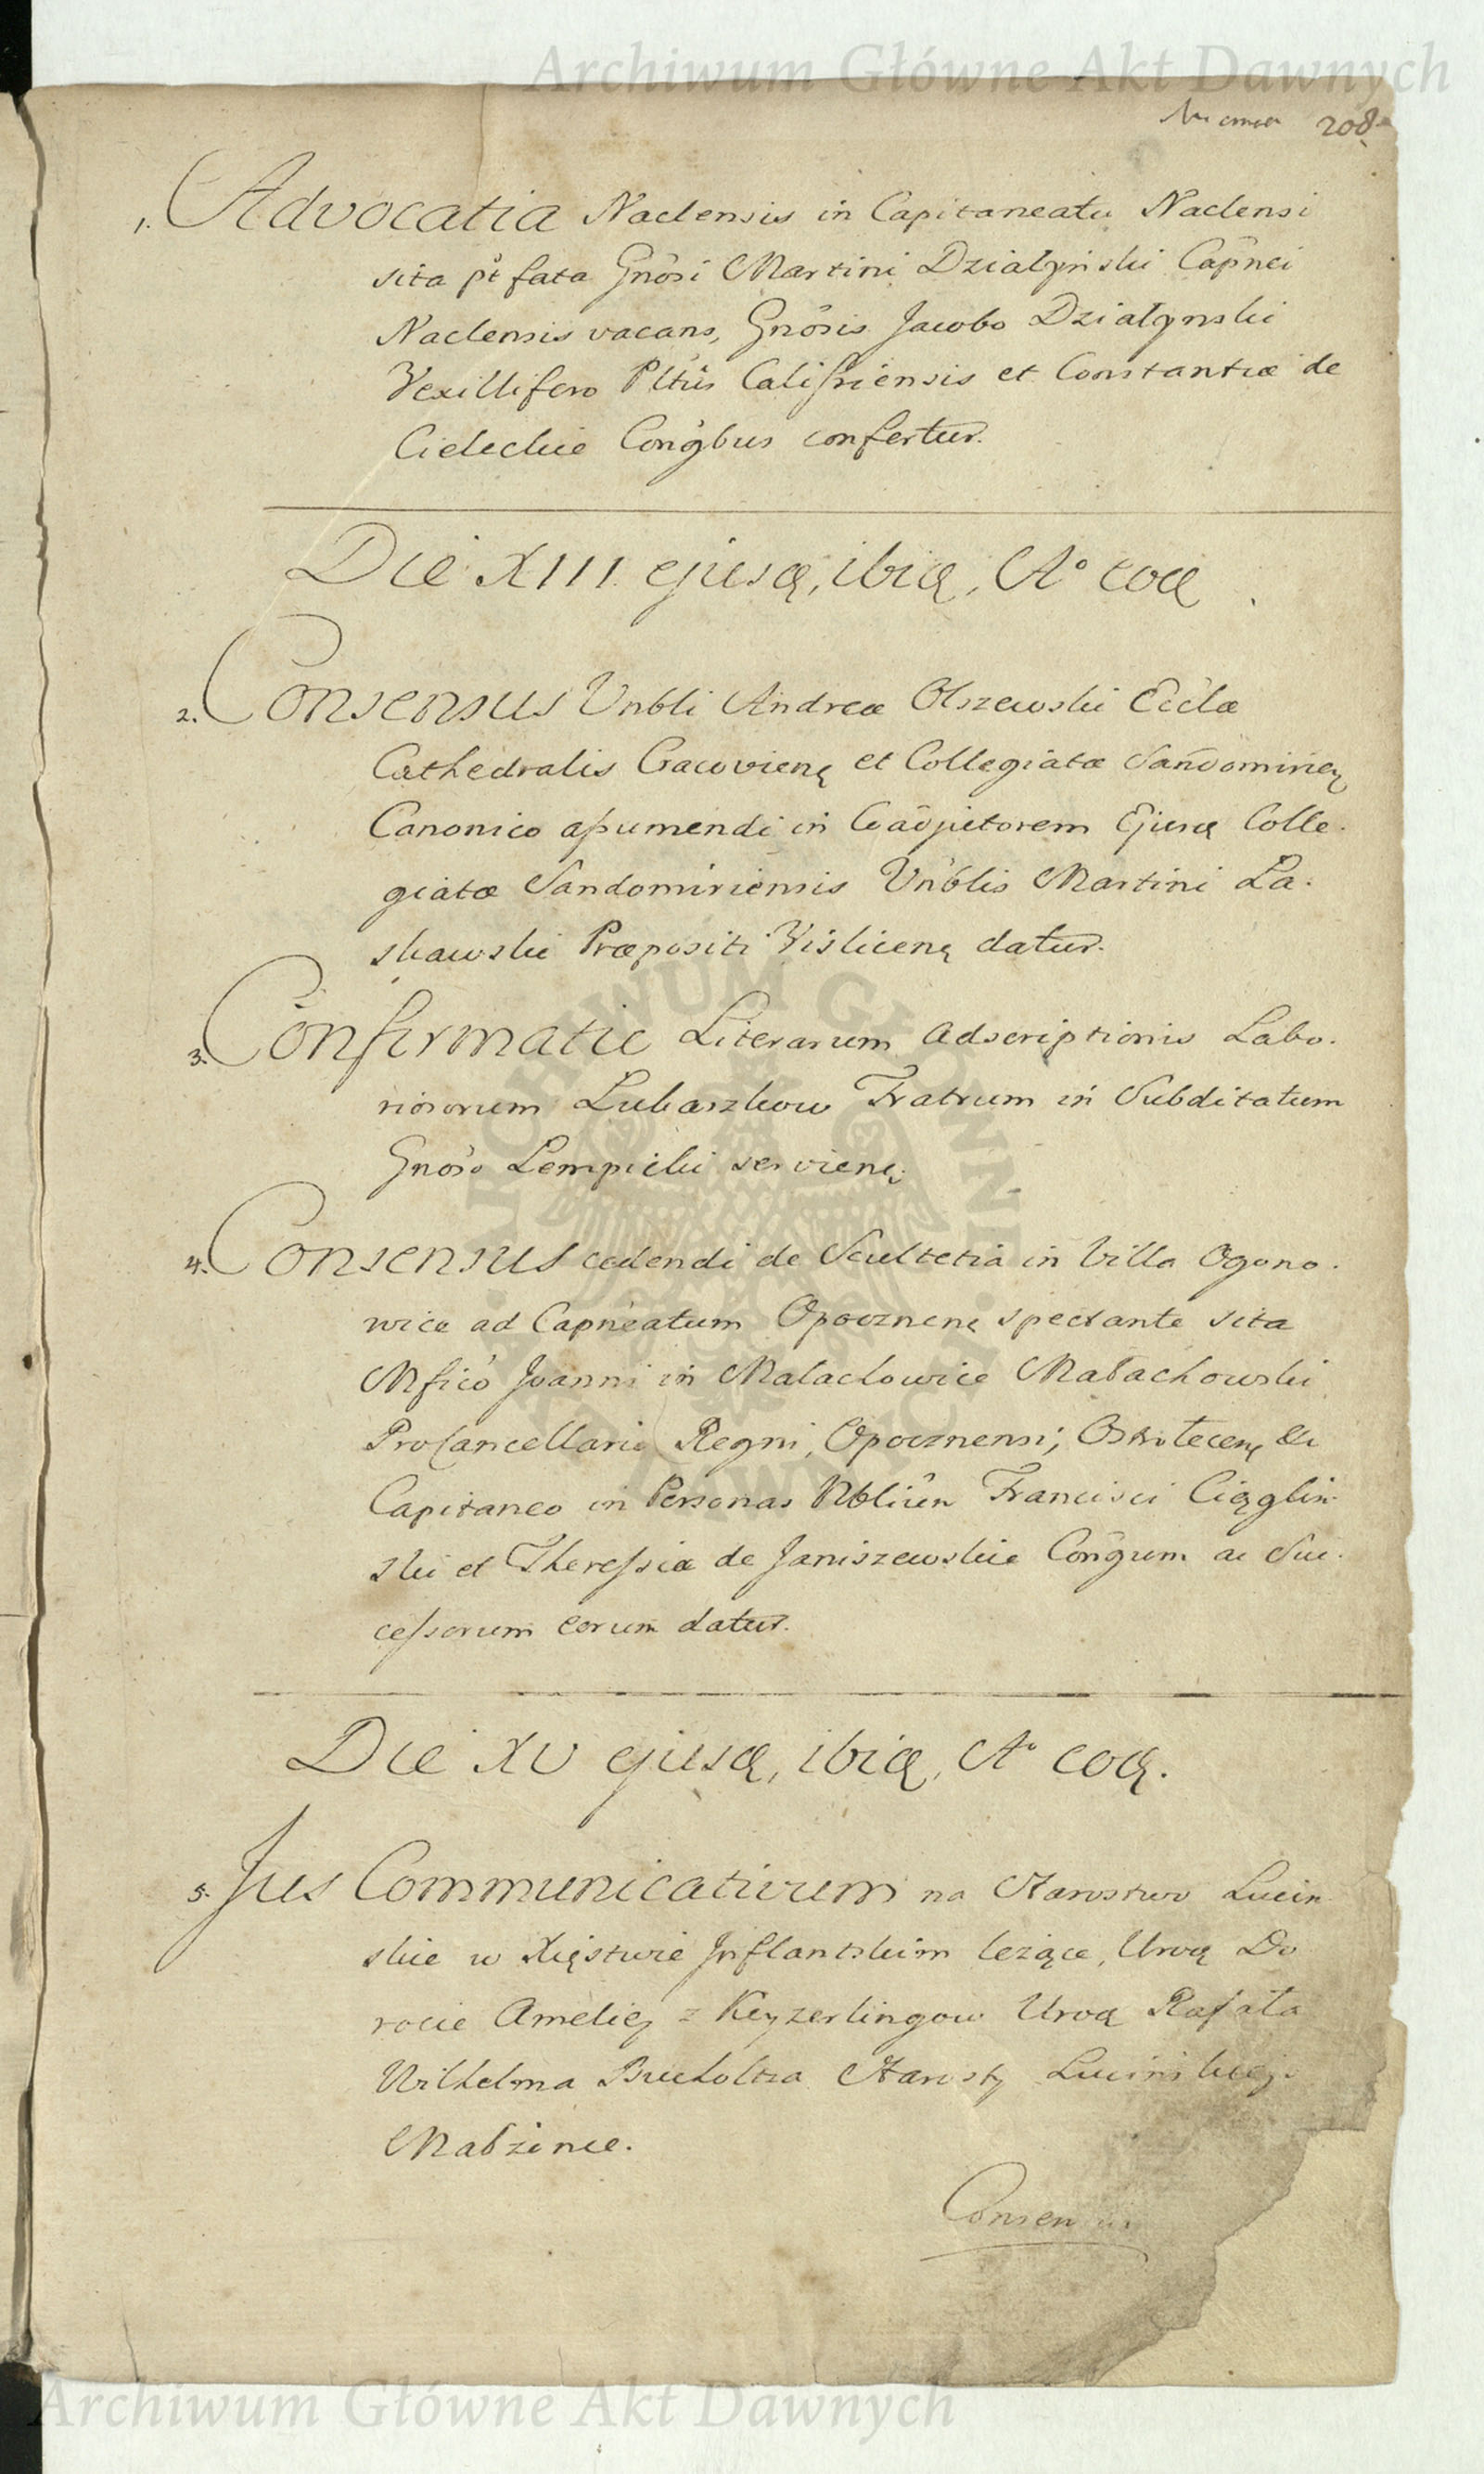 Archiwum Główne Akt Dawnych
208.
1. Advocatia Naclensis in Capitaneatu Naclensi
sita pt fata Gnosi Martini Działyński Capnei
Naclensis vacans, Gnosis Jacobo Działynski
Vexillifero Pltus Calissiensis et Constantiæ de
Cieleckie Congbus confertur.
Die XIII ejusq, ibiq, Ao eoq
2. Consensus Vnbli Andreæ Olszewski Ecclæ
Cathedralis Cracovienę et Collegiatæ Sandomirieņ
Canonico assumendi in Coadjutorem Ejusq Colle-
giatæ Sandomiriensis Vnblis Martini La-
skawski Præpositi Vislicenę datur.
3. Confirmatio Literarum adscriptionis Labo-
riosorum Lukaszkow Fratrum in Subditatum
Gnoso Lempicki servienę.
4. Consensus cedendi de Scultetia in Villa Ogono-
wice ad Capneatum Opocznenę spectante sita
Mfico Joanni in Małachowice Małachowski
ProCancellario Regni, Opocznensi, Ostrołecenę &c
Capitaneo in Personas Nbliūm Francisci Ciągliń-
ski et Theressiæ de Janiszewskie Congum ac Suc-
cessorum eorum datur.
Die XV ejusq, ibiq, Ao eoq.
5. Jus Communicativum na Starostwo Lucin
skie w Xięstwie Inflantskim leżące, Uroę Do
rocie Amelię z Keyzerlingow Uroą Rafała
Wilhelma Bucholtza Starosty Lucińskiego
Małżince.
Consensus
ARCHIWUM GŁÓWNE AKT DAWNYCH
Archiwum Główne Akt Dawnych